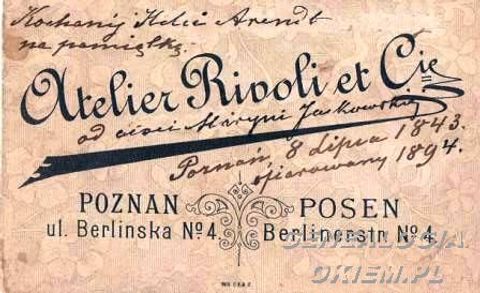 Kochanej Helci Arendt
na pamiątkę.
Atelier Rivoli et Cie
od cioci Maryni Jaskowskiej
Poznań, 8 Lipca 1843.
ofiarowany 1894.
POZNAN POSEN
ul. Berlinska Nº 4. Berlinerstr. Nº 4.
GENEALOGIA
OKIEM.PL